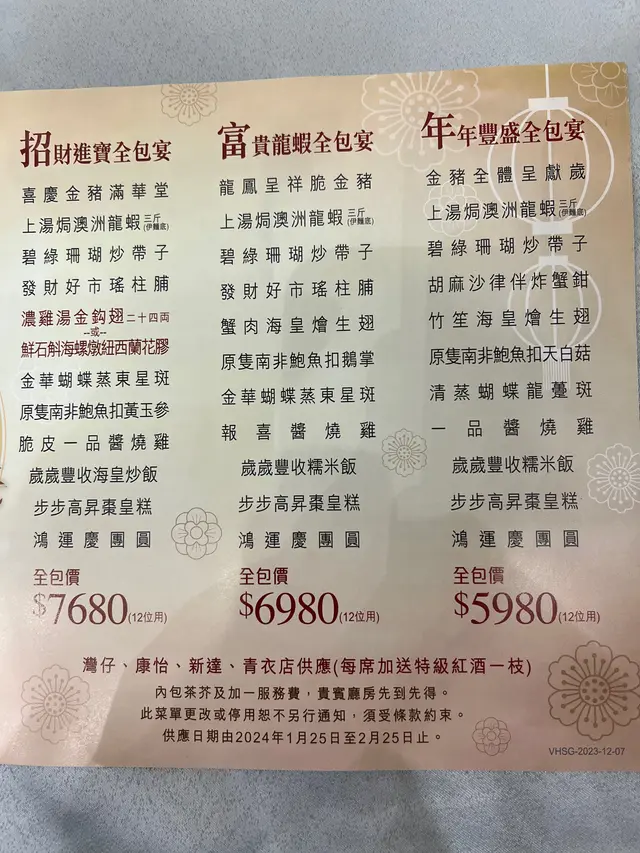 招財進寶全包宴
喜慶金豬滿華堂
上湯焗澳洲龍蝦三斤(伊麵底)
碧綠珊瑚炒帶子
發財好市瑤柱脯
濃雞湯金鈎翅二十四両
--或--
鮮石斛海螺燉紐西蘭花膠
金華蝴蝶蒸東星斑
原隻南非鮑魚扣黃玉參
脆皮一品醬燒雞
歲歲豐收海皇炒飯
步步高昇棗皇糕
鴻運慶團圓
全包價
$7680(12位用)
富貴龍蝦全包宴
龍鳳呈祥脆金豬
上湯焗澳洲龍蝦三斤(伊麵底)
碧綠珊瑚炒帶子
發財好市瑤柱脯
蟹肉海皇燴生翅
原隻南非鮑魚扣鵝掌
金華蝴蝶蒸東星斑
報喜醬燒雞
歲歲豐收糯米飯
步步高昇棗皇糕
鴻運慶團圓
全包價
$6980(12位用)
年年豐盛全包宴
金豬全體呈獻歲
上湯焗澳洲龍蝦三斤(伊麵底)
碧綠珊瑚炒帶子
胡麻沙律伴炸蟹鉗
竹笙海皇燴生翅
原隻南非鮑魚扣天白菇
清蒸蝴蝶龍躉斑
一品醬燒雞
歲歲豐收糯米飯
步步高昇棗皇糕
鴻運慶團圓
全包價
$5980(12位用)
灣仔、康怡、新達、青衣店供應(每席加送特級紅酒一枝)
內包茶芥及加一服務費，貴賓廳房先到先得。
此菜單更改或停用恕不另行通知，須受條款約束。
供應日期由2024年1月25日至2月25日止。
VHSG-2023-12-07